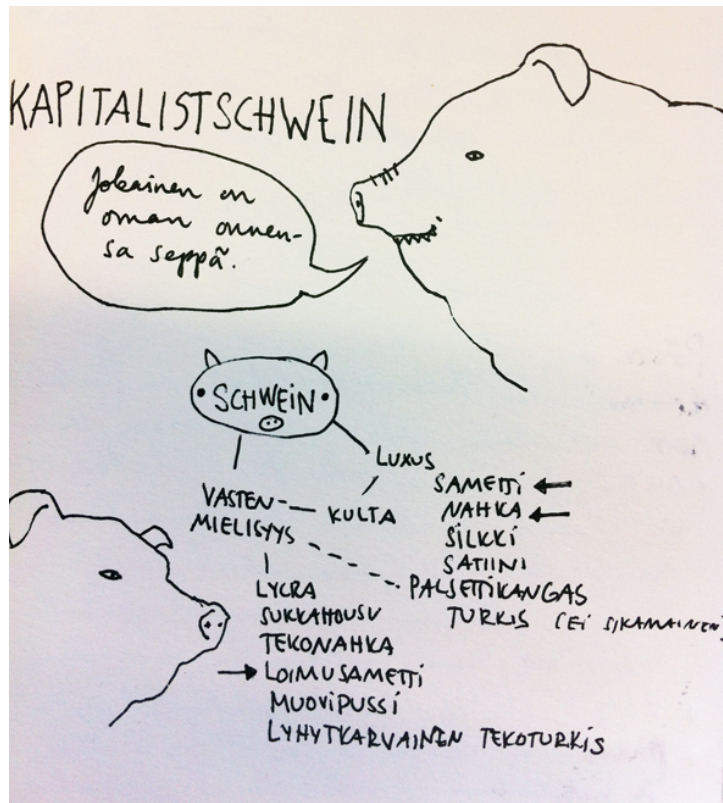 KAPITALISTSCHWEIN
Jokainen on
oman onnen-
sa seppä.
SCHWEIN
LUXUS
SAMETTI
NAHKA
SILKKI
SATIINI
PALJETTIKANGAS
TURKIS (EI SIKAMAINEN)
VASTEN-
MIELISYYS
KULTA
LYCRA
SUKKAHOUSU
TEKONAHKA
LOIMUSAMETTI
MUOVIPUSSI
LYHYTKARVAINEN TEKOTURKIS